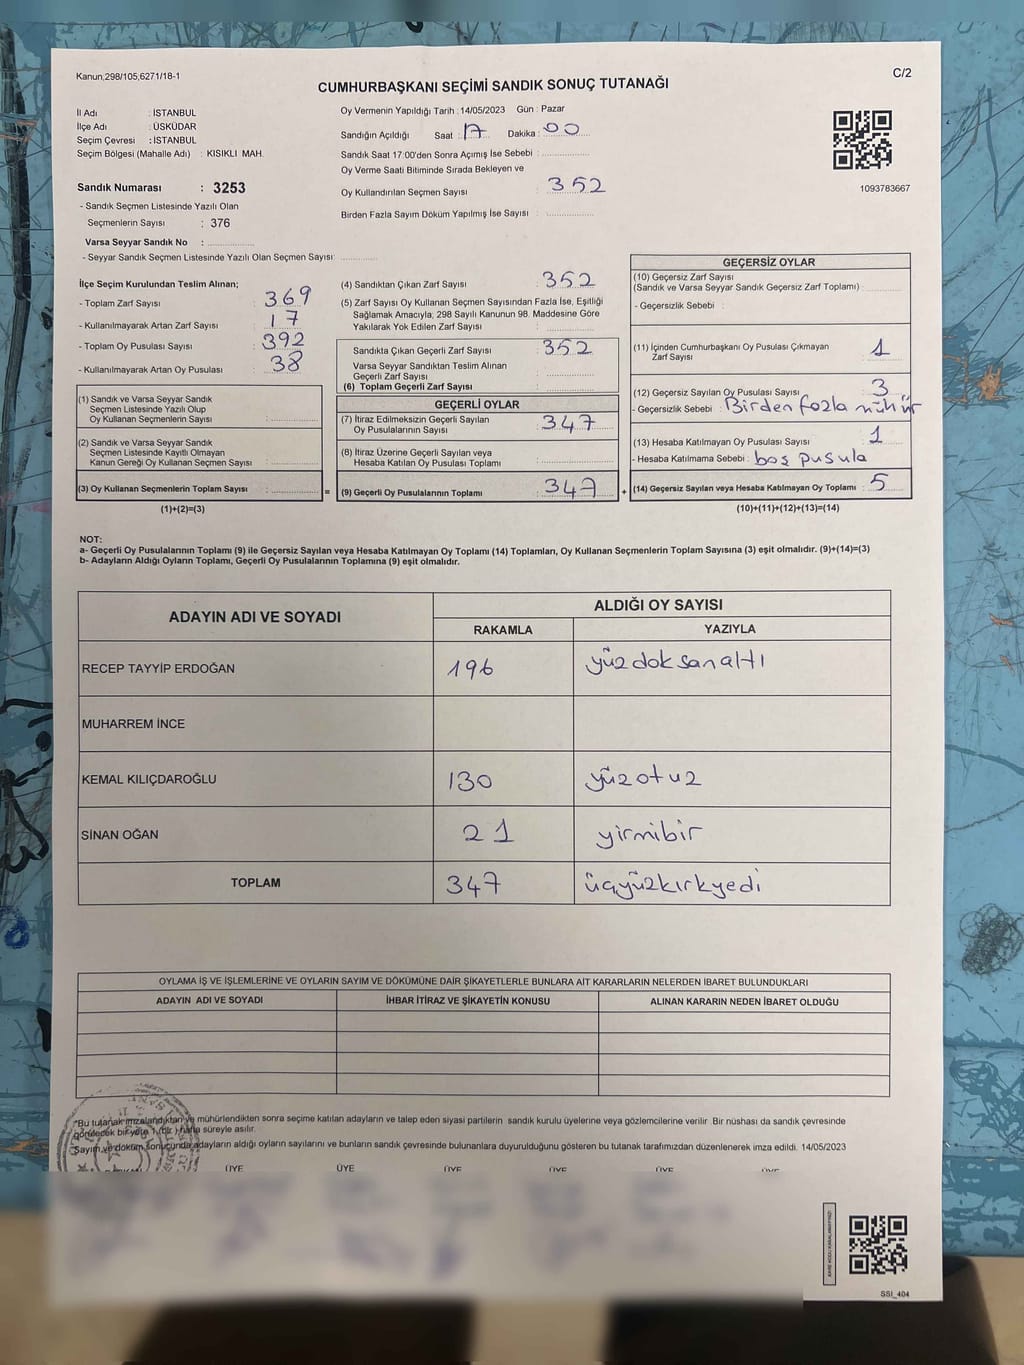 Kanun,298/105,6271/18-1
C/2
CUMHURBAŞKANI SEÇİMİ SANDIK SONUÇ TUTANAĞI
İl Adı : İSTANBUL
İlçe Adı : ÜSKÜDAR
Seçim Çevresi : İSTANBUL
Seçim Bölgesi (Mahalle Adı) : KISIKLI MAH.
Sandık Numarası : 3253
- Sandık Seçmen Listesinde Yazılı Olan
Seçmenlerin Sayısı : 376
Varsa Seyyar Sandık No :
- Seyyar Sandık Seçmen Listesinde Yazılı Olan Seçmen Sayısı:
Oy Vermenin Yapıldığı Tarih : 14/05/2023 Gün : Pazar
Sandığın Açıldığı Saat : 17 Dakika : 00
Sandık Saat 17:00'den Sonra Açımış İse Sebebi :
Oy Verme Saati Bitiminde Sırada Bekleyen ve
Oy Kullandırılan Seçmen Sayısı : 352
Birden Fazla Sayım Döküm Yapılmış İse Sayısı :
1093783667
İlçe Seçim Kurulundan Teslim Alınan;
- Toplam Zarf Sayısı : 369
- Kullanılmayarak Artan Zarf Sayısı : 17
- Toplam Oy Pusulası Sayısı : 392
- Kullanılmayarak Artan Oy Pusulası : 38
(1) Sandık ve Varsa Seyyar Sandık
Seçmen Listesinde Yazılı Olup
Oy Kullanan Seçmenlerin Sayısı :
(2) Sandık ve Varsa Seyyar Sandık
Seçmen Listesinde Kayıtlı Olmayan
Kanun Gereği Oy Kullanan Seçmen Sayısı :
(3) Oy Kullanan Seçmenlerin Toplam Sayısı :
(1)+(2)=(3)
=
(4) Sandıktan Çıkan Zarf Sayısı : 352
(5) Zarf Sayısı Oy Kullanan Seçmen Sayısından Fazla İse, Eşitliği
Sağlamak Amacıyla, 298 Sayılı Kanunun 98. Maddesine Göre
Yakılarak Yok Edilen Zarf Sayısı :
Sandıkta Çıkan Geçerli Zarf Sayısı : 352
Varsa Seyyar Sandıktan Teslim Alınan
Geçerli Zarf Sayısı :
(6) Toplam Geçerli Zarf Sayısı :
GEÇERLİ OYLAR
(7) İtiraz Edilmeksizin Geçerli Sayılan
Oy Pusulalarının Sayısı : 347
(8) İtiraz Üzerine Geçerli Sayılan veya
Hesaba Katılan Oy Pusulası Toplamı :
(9) Geçerli Oy Pusulalarının Toplamı : 347
+
GEÇERSİZ OYLAR
(10) Geçersiz Zarf Sayısı
(Sandık ve Varsa Seyyar Sandık Geçersiz Zarf Toplamı) :
- Geçersizlik Sebebi :
(11) İçinden Cumhurbaşkanı Oy Pusulası Çıkmayan
Zarf Sayısı : 1
(12) Geçersiz Sayılan Oy Pusulası Sayısı : 3
- Geçersizlik Sebebi : Birden fazla mühür
(13) Hesaba Katılmayan Oy Pusulası Sayısı : 1
- Hesaba Katılmama Sebebi : boş pusula
(14) Geçersiz Sayılan veya Hesaba Katılmayan Oy Toplamı : 5
(10)+(11)+(12)+(13)=(14)
NOT:
a- Geçerli Oy Pusulalarının Toplamı (9) ile Geçersiz Sayılan veya Hesaba Katılmayan Oy Toplamı (14) Toplamları, Oy Kullanan Seçmenlerin Toplam Sayısına (3) eşit olmalıdır. (9)+(14)=(3)
b- Adayların Aldığı Oyların Toplamı, Geçerli Oy Pusulalarının Toplamına (9) eşit olmalıdır.
ADAYIN ADI VE SOYADI
ALDIĞI OY SAYISI
RAKAMLA YAZIYLA
RECEP TAYYİP ERDOĞAN 196 yüzdoksanaltı
MUHARREM İNCE
KEMAL KILIÇDAROĞLU 130 yüzotuz
SİNAN OĞAN 21 yirmibir
TOPLAM 347 üçyüzkırkyedi
OYLAMA İŞ VE İŞLEMLERİNE VE OYLARIN SAYIM VE DÖKÜMÜNE DAİR ŞİKAYETLERLE BUNLARA AİT KARARLARIN NELERDEN İBARET BULUNDUKLARI
ADAYIN ADI VE SOYADI İHBAR İTİRAZ VE ŞİKAYETİN KONUSU ALINAN KARARIN NEDEN İBARET OLDUĞU
*Bu tutanak imzalandıktan ve mühürlendikten sonra seçime katılan adayların ve talep eden siyasi partilerin sandık kurulu üyelerine veya gözlemcilerine verilir Bir nüshası da sandık çevresinde
görülecek bir yere 1 (bir ) hafta süreyle asılır.
Sayım ve döküm sonucunda adayların aldığı oyların sayılarını ve bunların sandık çevresinde bulunanlara duyurulduğunu gösteren bu tutanak tarafımızdan düzenlenerek imza edildi. 14/05/2023
ÜYE ÜYE ÜYE ÜYE ÜYE ÜYE
SSİ_404